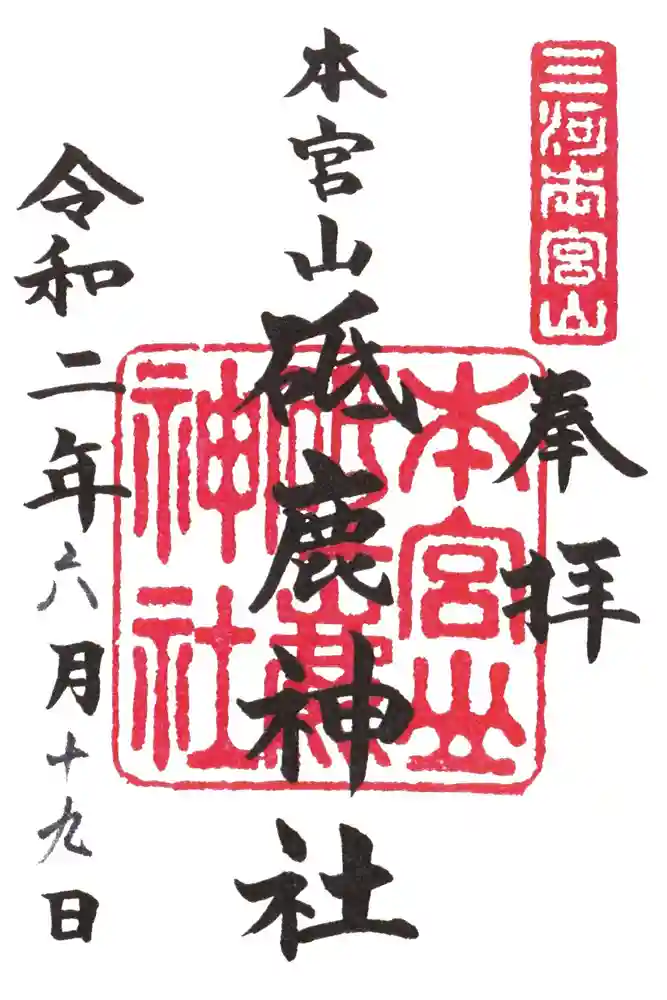 三河本宮山
奉拝
本宮山
砥鹿神社
本宮山
砥鹿
神社
令和二年六月十九日